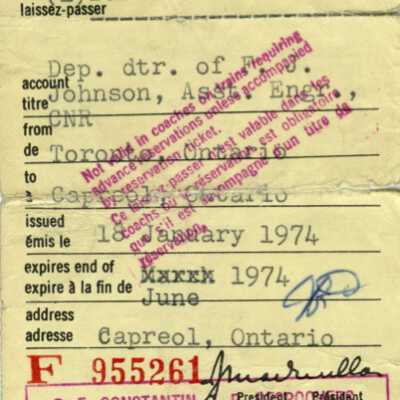 laissez-passer
Dep. dtr. of F. J.
account
titre Johnson, Asst. Engr.,
CNR
from
de Toronto, Ontario
to
à Capreol, Ontario
issued
émis le 18 January 1974
expires end of
expire à la fin de 1974
June
address
adresse Capreol, Ontario
F 955261
President Président
CONSTANTIN
Not valid in coaches of trains requiring
advance reservations unless accompanied
by reservation ticket.
Ce laissez-passer n'est valable dans les
coachs où la réservation est obligatoire
que s'il est accompagné d'un titre de
réservation.